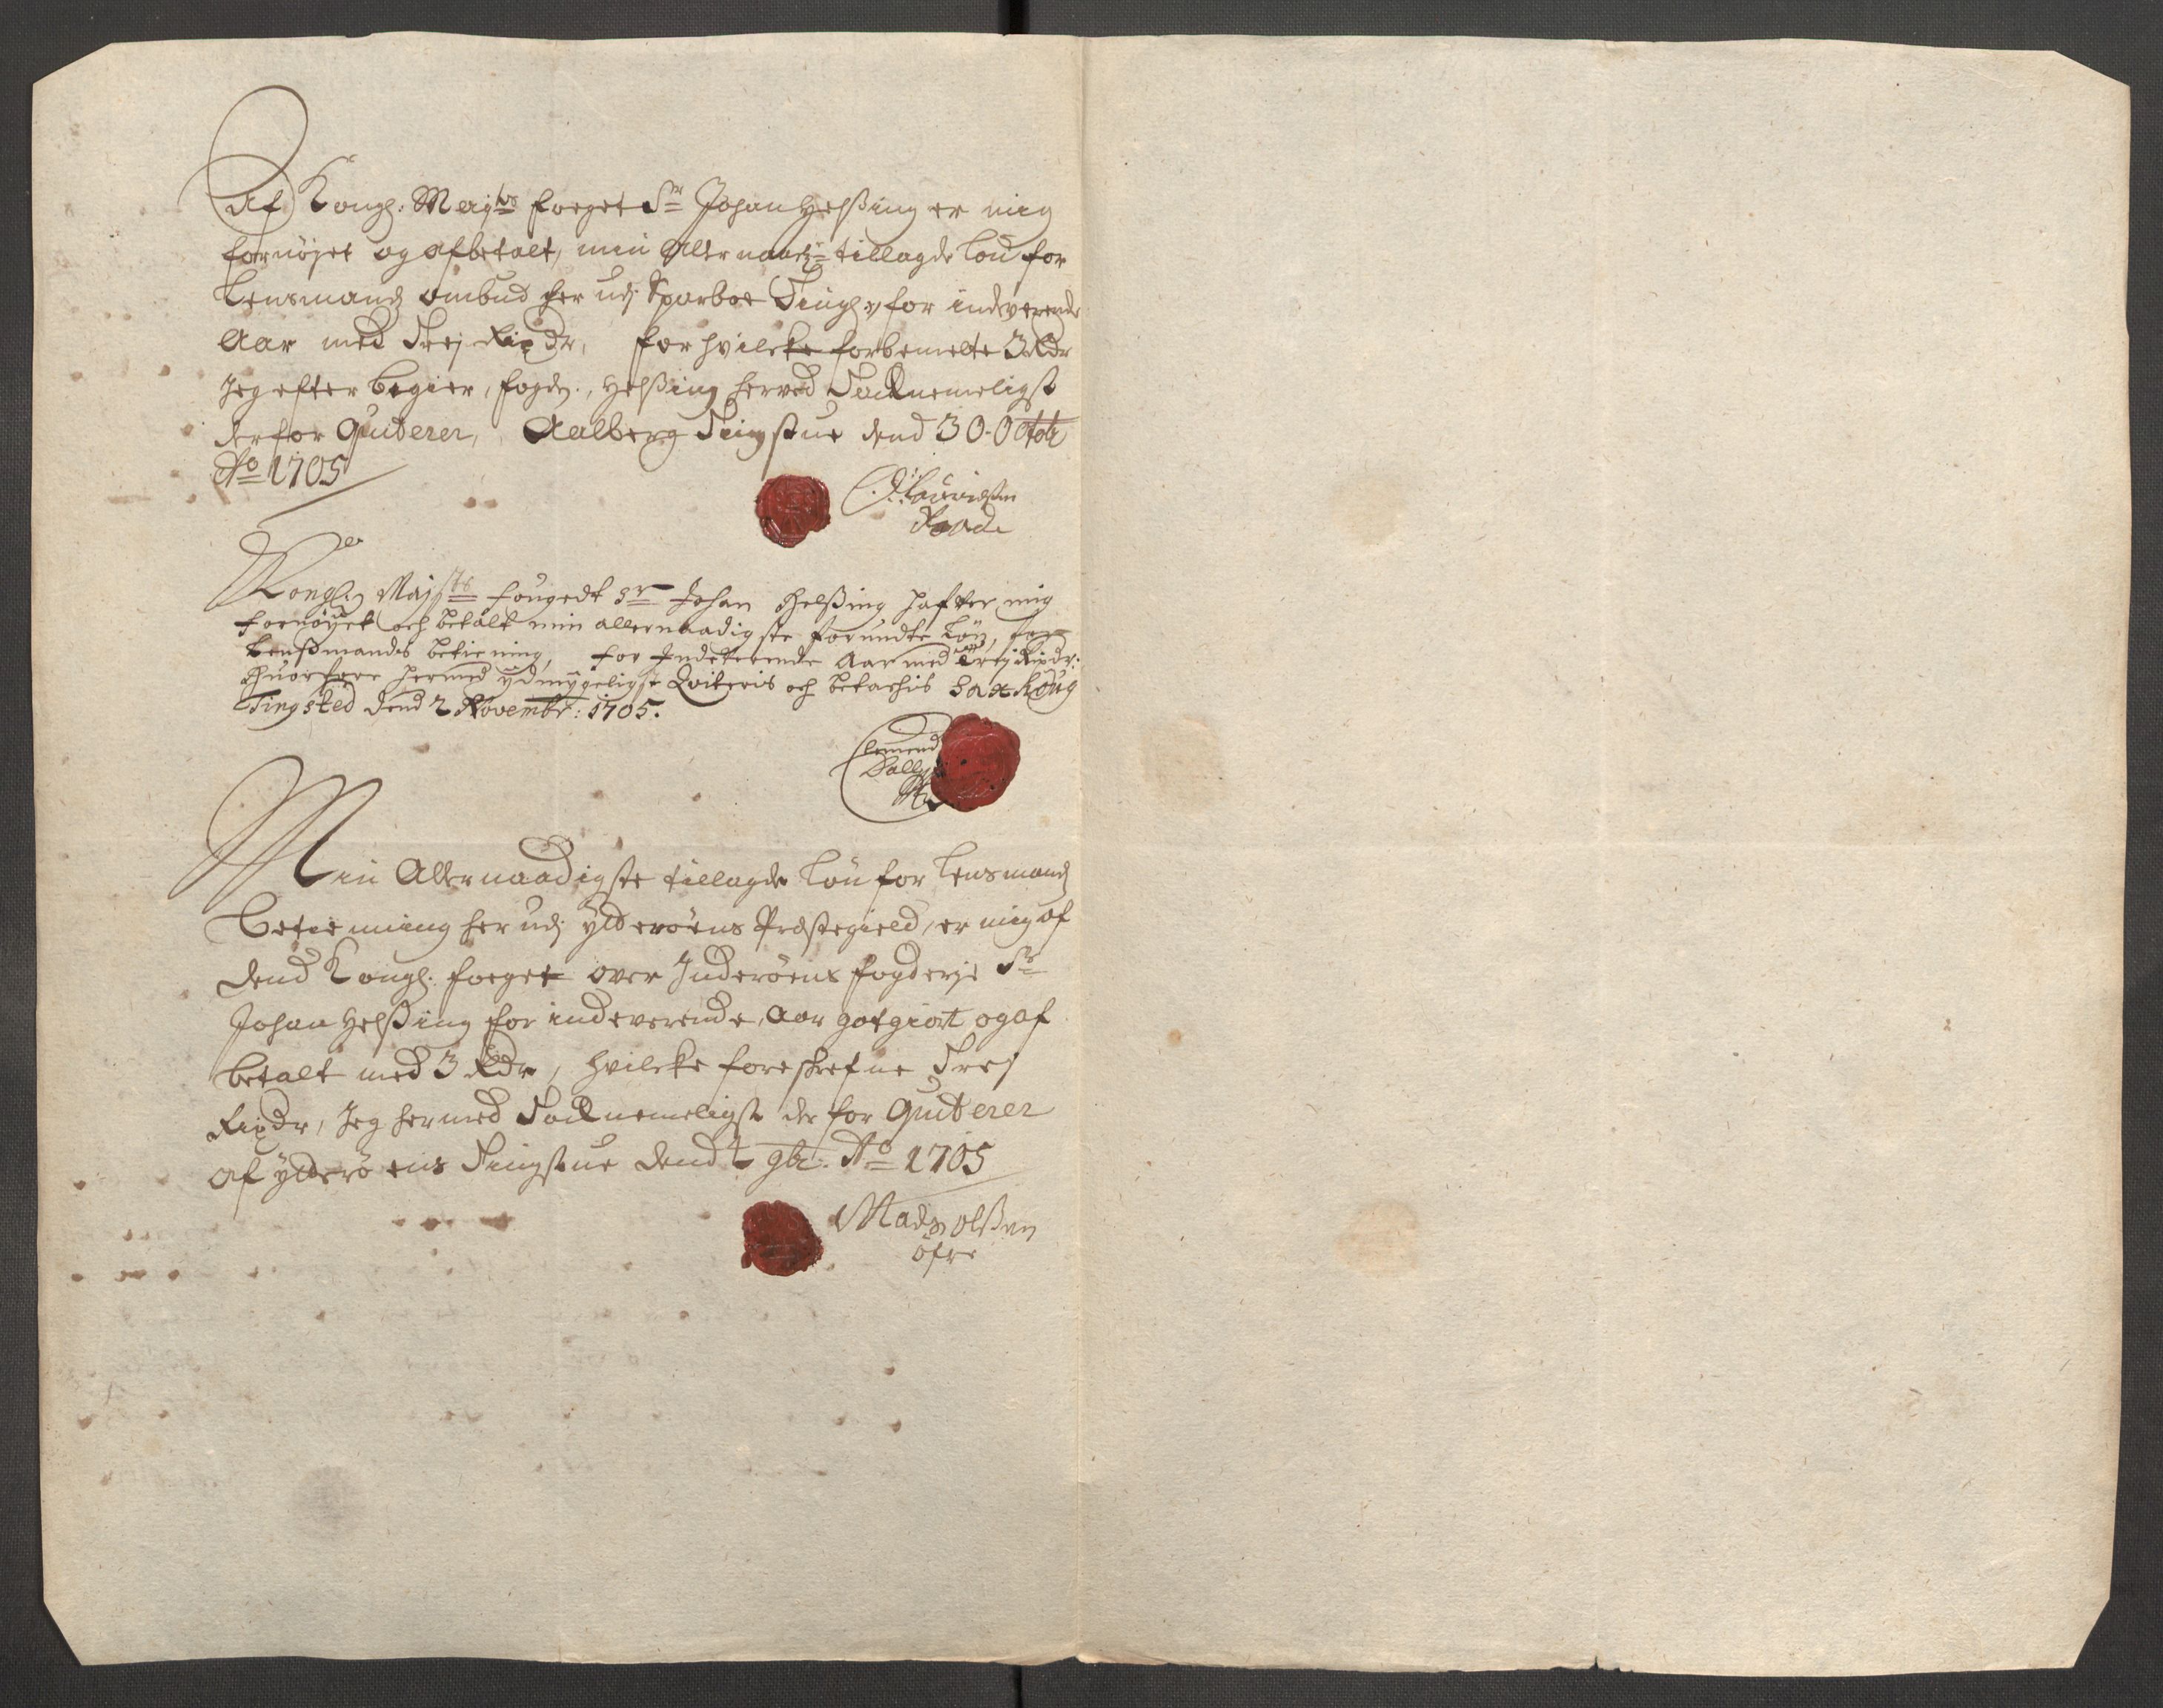 Af Kongl: Mayts foeget Sr Johan Helßing er mig
fornöyet og afbetalt, min Allernaadigste tillagde Lön for
Lensmandz ombud her udj Sparboe Tinglav for indeverende
Aar med Trej Rixdr, for hvilcke forbemelte 3 Rdr
Jeg efter begier, fogden, Helßing herved Tacknemeligst
derfor Quiterer, Aalberg Tingstue dend 30 Octobr
Ao 1705
Lauridsen
Kongl: Maysts fougedt Sr Johan Helßing hafver mig
fornöyet och betalt min allernaadigste forundte Lön, for
Lenßmands betiening, for Indeverende Aar med Trej Rixdr:
Huorfore hermed ydmygeligst Qviteris och betachis Saxhoug
Tingsted dend 2 Novembr: 1705.
Clemend
Min Allernaadigste tillagde Lön for Lensmandz
betiening her udj Ytterøens Præstegield, er mig af
dend Kongl. foeget over Inderøens fogderje Sr
Johan Helßing for indeverende Aar gotgiort og af
betalt med 3 Rdr, hvilcke foreskrefne Trej
Rixdr, Jeg hermed Tacknemeligst der for Quiterer
af Ytterøens Tingstue dend 9br. Ao 1705
Madz Olßen
öfre